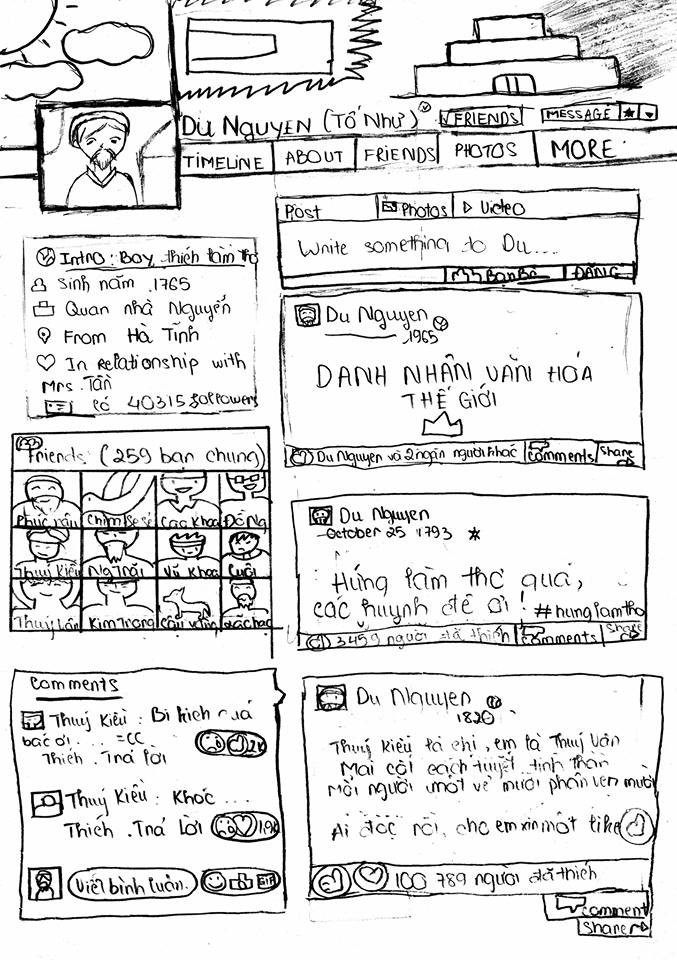 Du Nguyen (Tố Như)
FRIENDS
MESSAGE
TIMELINE
ABOUT
FRIENDS
PHOTOS
MORE
Post
Photos
Video
Write something to Du...
Bạn Bè
ĐĂNG
Intro: Boy thích làm thơ
Sinh năm 1765
Quan nhà Nguyễn
From Hà Tĩnh
In Relationship with
Mrs. Tần
Có 40315 followers
Du Nguyen
1965
DANH NHÂN VĂN HÓA
THẾ GIỚI
Du Nguyen và 2 ngàn người khác
comments
share
Friends (259 bạn chung)
Phúc râu
Chim Se sẻ
Cao Khoa
Đô Ng
Thuý Kiều
Ng Trãi
Vũ Khoa
Cuội
Thuý Vân
Kim Trọng
Cậu Vàng
Lão hạc
Du Nguyen
October 25 1793
Hứng làm thơ quá,
các huynh đệ ơi! #hunglamtho
3459 người đã thích
comments
share
Comments
Thuý Kiều: Bi kịch quá
bác ơi.... =((
Thích. Trả lời
2K
Thuý Kiều: Khóc ...
Thích. Trả Lời
1,9K
Viết bình luận.
GIF
Du Nguyen
1820
Thuý Kiều là chị, em là Thuý Vân
Mai cốt cách tuyết tinh thần
Mỗi người một vẻ mười phân vẹn mười
Ai đọc rồi, cho em xin một like
100 789 người đã thích
comment
share